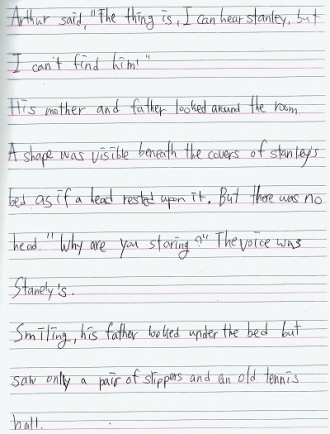 Arthur said, "The thing is, I can hear stanley, but
I can't find him!"
His mother and father looked around the room.
A shape was visible beneath the covers of stanley's
bed as if a head rested upon it. But there was no
head. "Why are you staring?" The voice was
Stanely's.
Smiling, his father looked under the bed but
saw only a pair of slippers and an old tennis
ball.